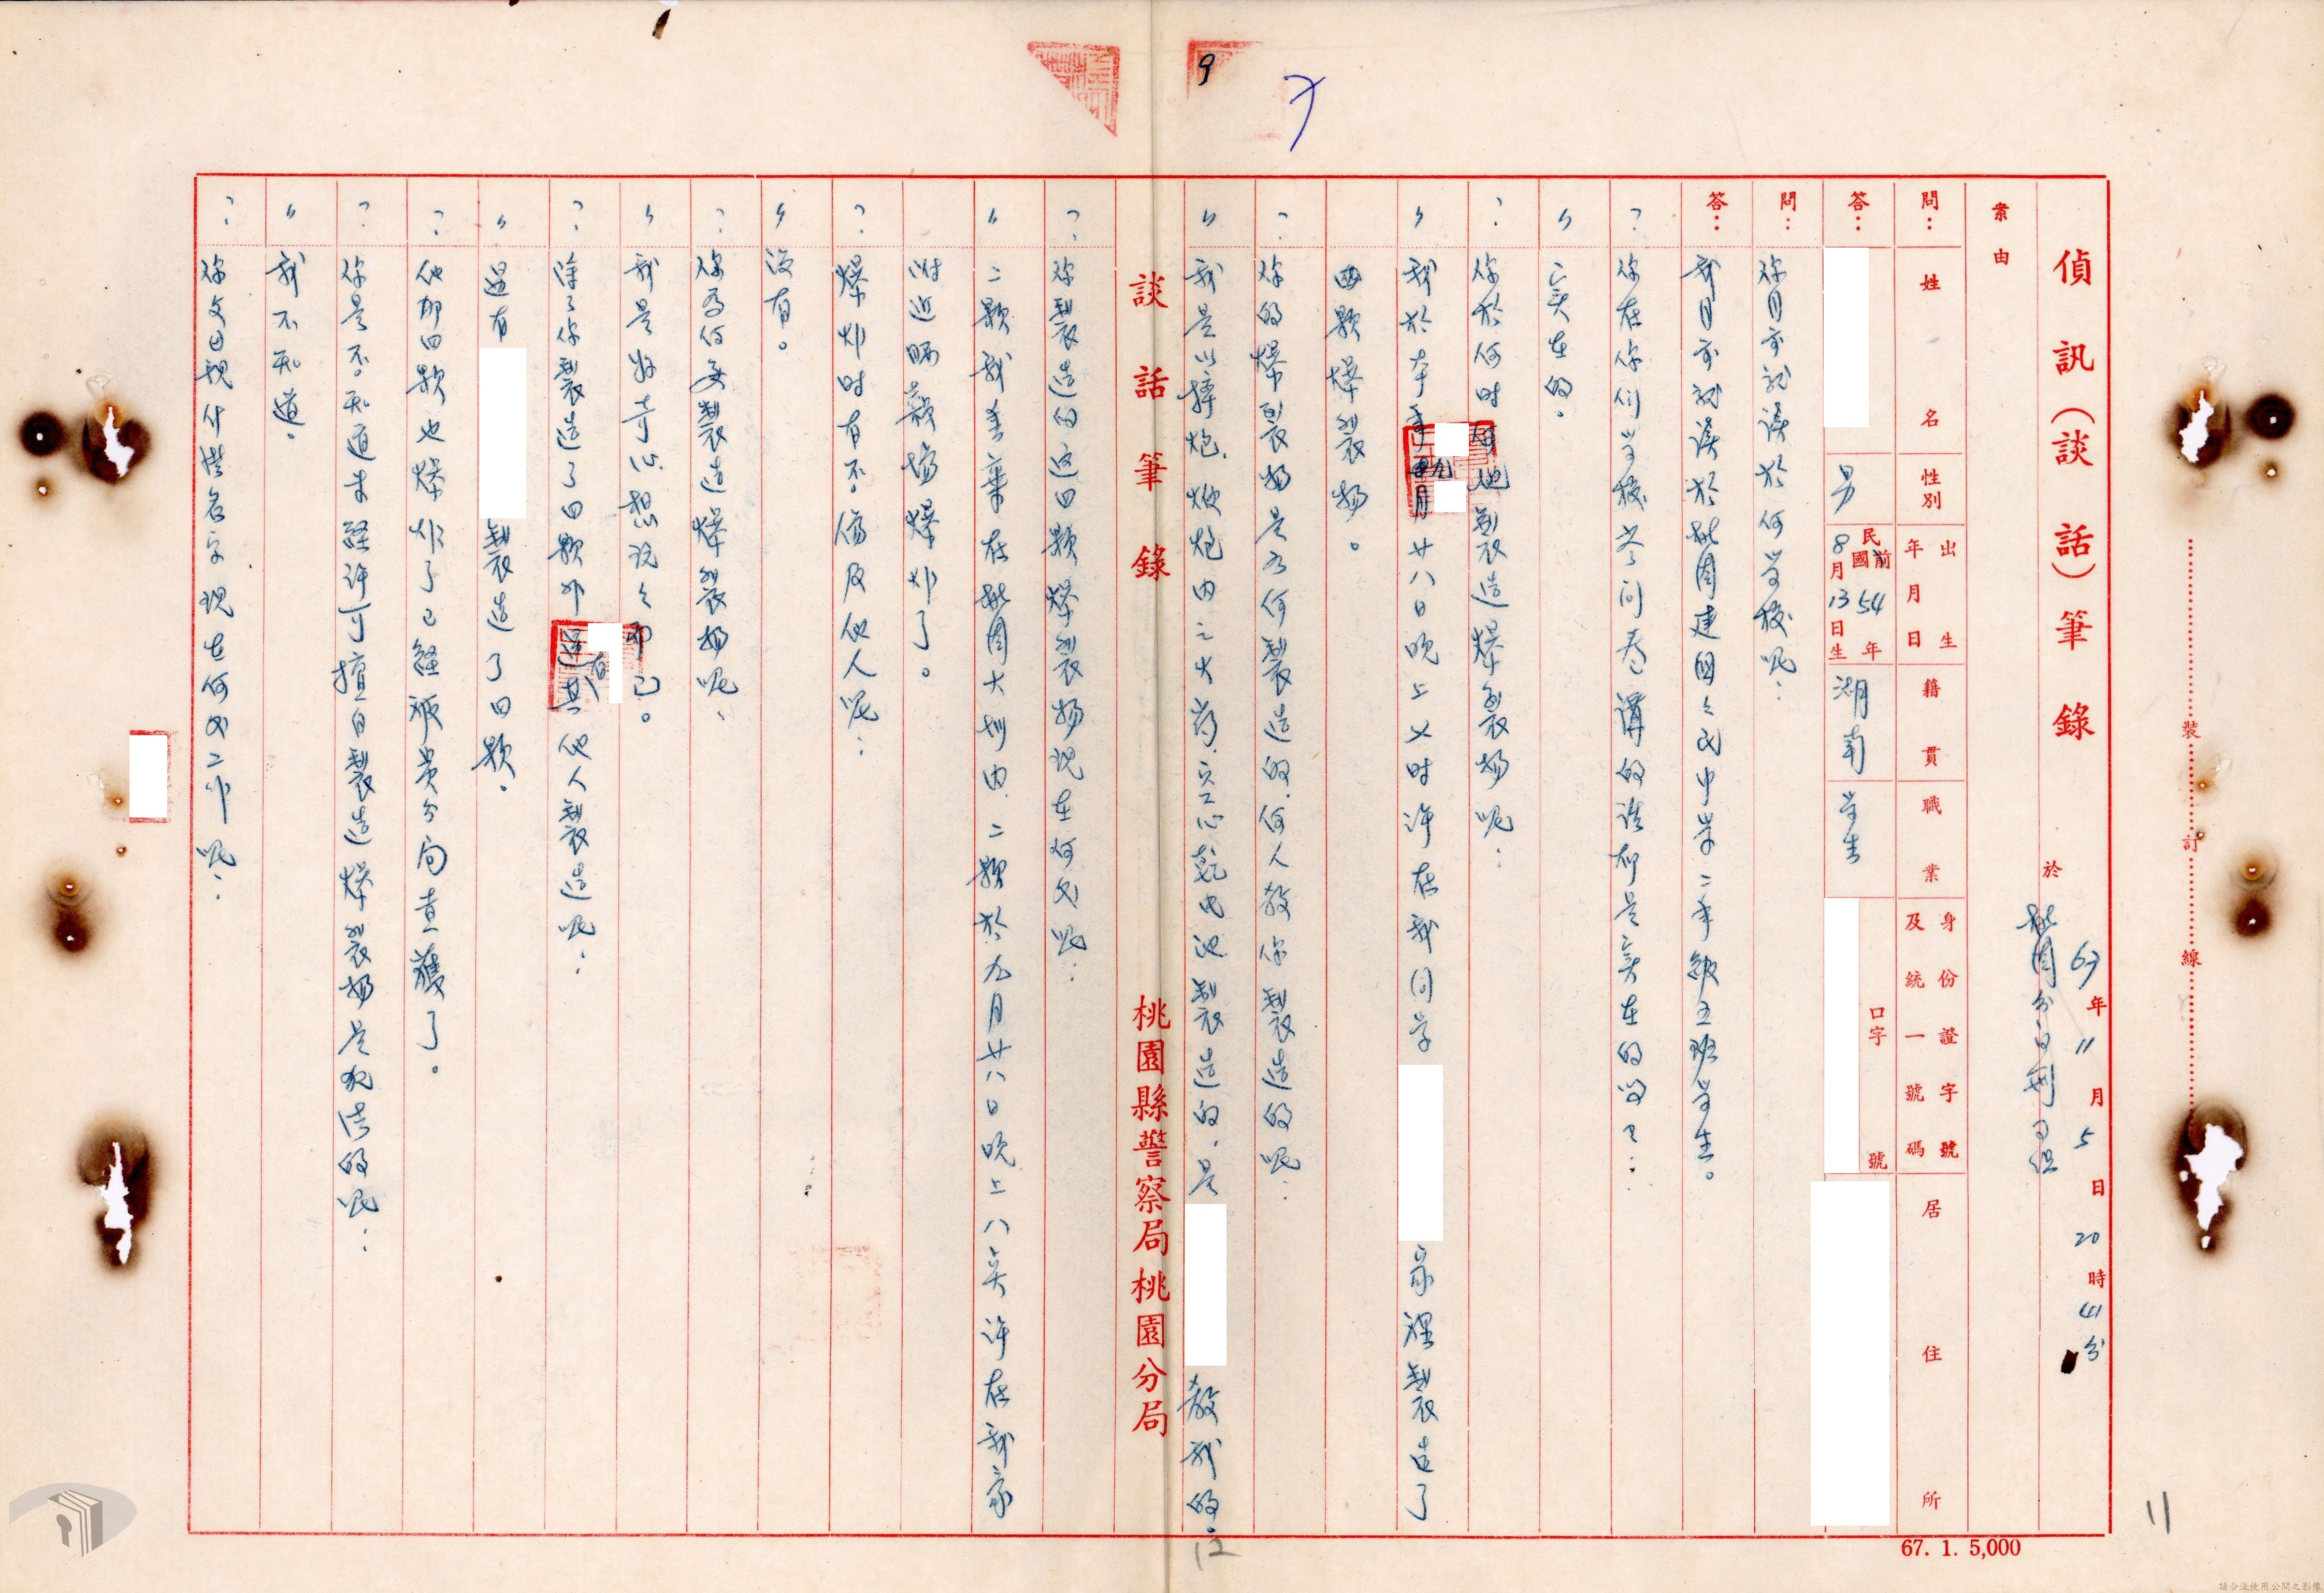 9
偵訊（談話）筆錄
67年11月5日20時41分
於桃園分局刑事組
案由
問：姓名 性別 出生年月日 籍貫 職業 身份證字號及統一號碼 居住所
答： 男 民國前54年8月13日生 湖南 學生 口字 號
問：你目前就讀於何學校呢：
答：我目前就讀於桃園建國國民中學二年級五班學生。
？你在你們學校岑问卷 講的話都是實在的嗎？：
〃實在的。
？你於何时 製造爆裂物呢：
〃我於本年九月廿八日晚上乂时许在我同学 家裡製造了
四顆爆裂物。
？你的爆裂物是為何製造的．何人教你製造的呢：
〃我是以摔炮．炮內之火药．空心乾电池製造的．是 教我的。
談話筆錄
桃園縣警察局桃園分局
？你製造的这四顆爆裂物现在何处呢：
〃二顆我丢棄在桃園大圳內．二顆於九月廿八日晚上八点许在我家
附近晒穀場爆炸了。
？爆炸时有不傷及他人呢：
〃没有。
？你為何要製造爆裂物呢：
〃我是好奇心想玩玩而已。
？除了你製造了四顆外還有其他人製造呢：
〃還有 製造了四顆。
？他那四顆也爆炸了已經被貴分局查獲了。
？你是不知道未經许可擅自製造爆裂物是犯法的呢：
〃我不知道。
？你父母親什麼名字现在何处工作呢：
裝訂線
67. 1. 5,000
11
12
請合法使用公開之影像